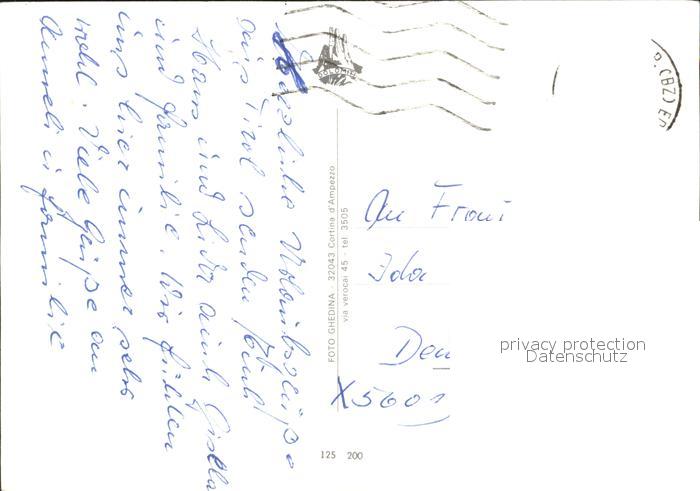 Herzliche Urlaubsgrüße
aus Tirol senden Euch
Hans und Sint Gisela
und Familie. Wir fühlen
uns hier immer sehr
wohl. Viele Grüße an
Anneli u. Familie
DOLOMITI
(BZ)
FOTO GHEDINA - 32043 Cortina d'Ampezzo
via verocai 45 - tel 3505
An Frau
Ida
X5601
privacy protection
Datenschutz
125 200